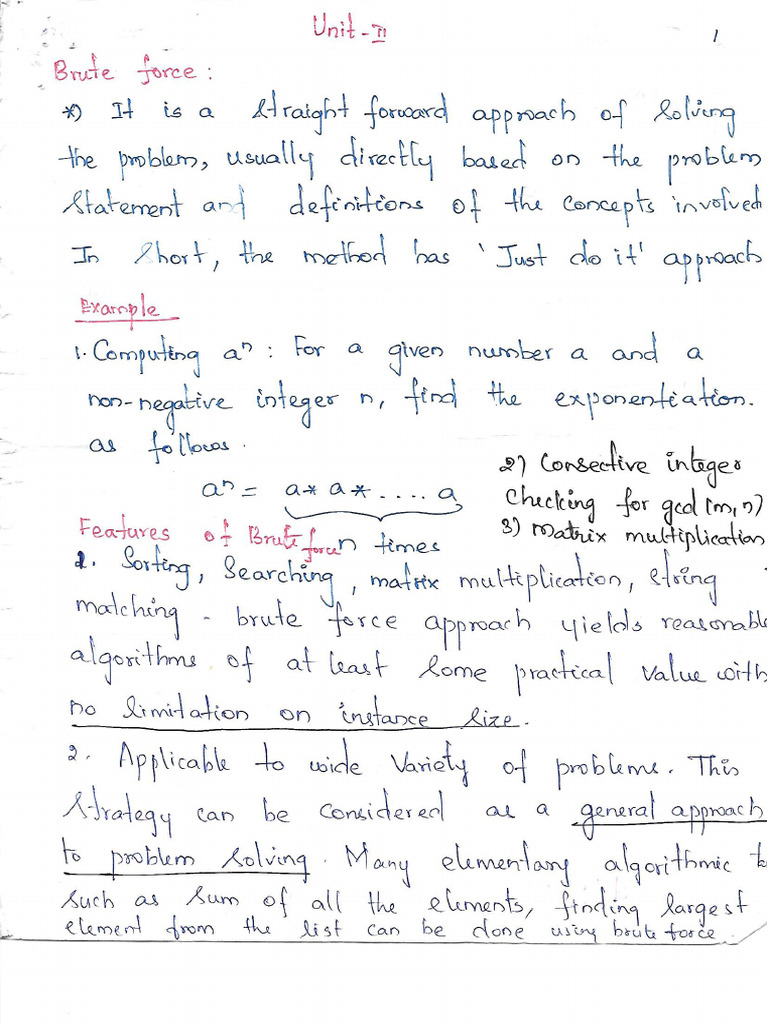 Unit-II
1
Brute force:
*) It is a straight forward approach of solving
the problem, usually directly based on the problem
statement and definitions of the concepts involved
In short, the method has 'Just do it' approach
Example
1. Computing aⁿ: For a given number a and a
non-negative integer n, find the exponentiation.
as follows.
aⁿ = a* a* .... a
n times
2) Consective integer
checking for gcd (m,n)
3) matrix multiplication
Features of Brute force
1. Sorting, Searching, matrix multiplication, string
matching - brute force approach yields reasonable
algorithms of at least some practical value with
no limitation on instance size.
2. Applicable to wide variety of problems. This
strategy can be considered as a general approach
to problem solving. Many elementary algorithmic
such as sum of all the elements, finding largest
element from the list can be done using brute force